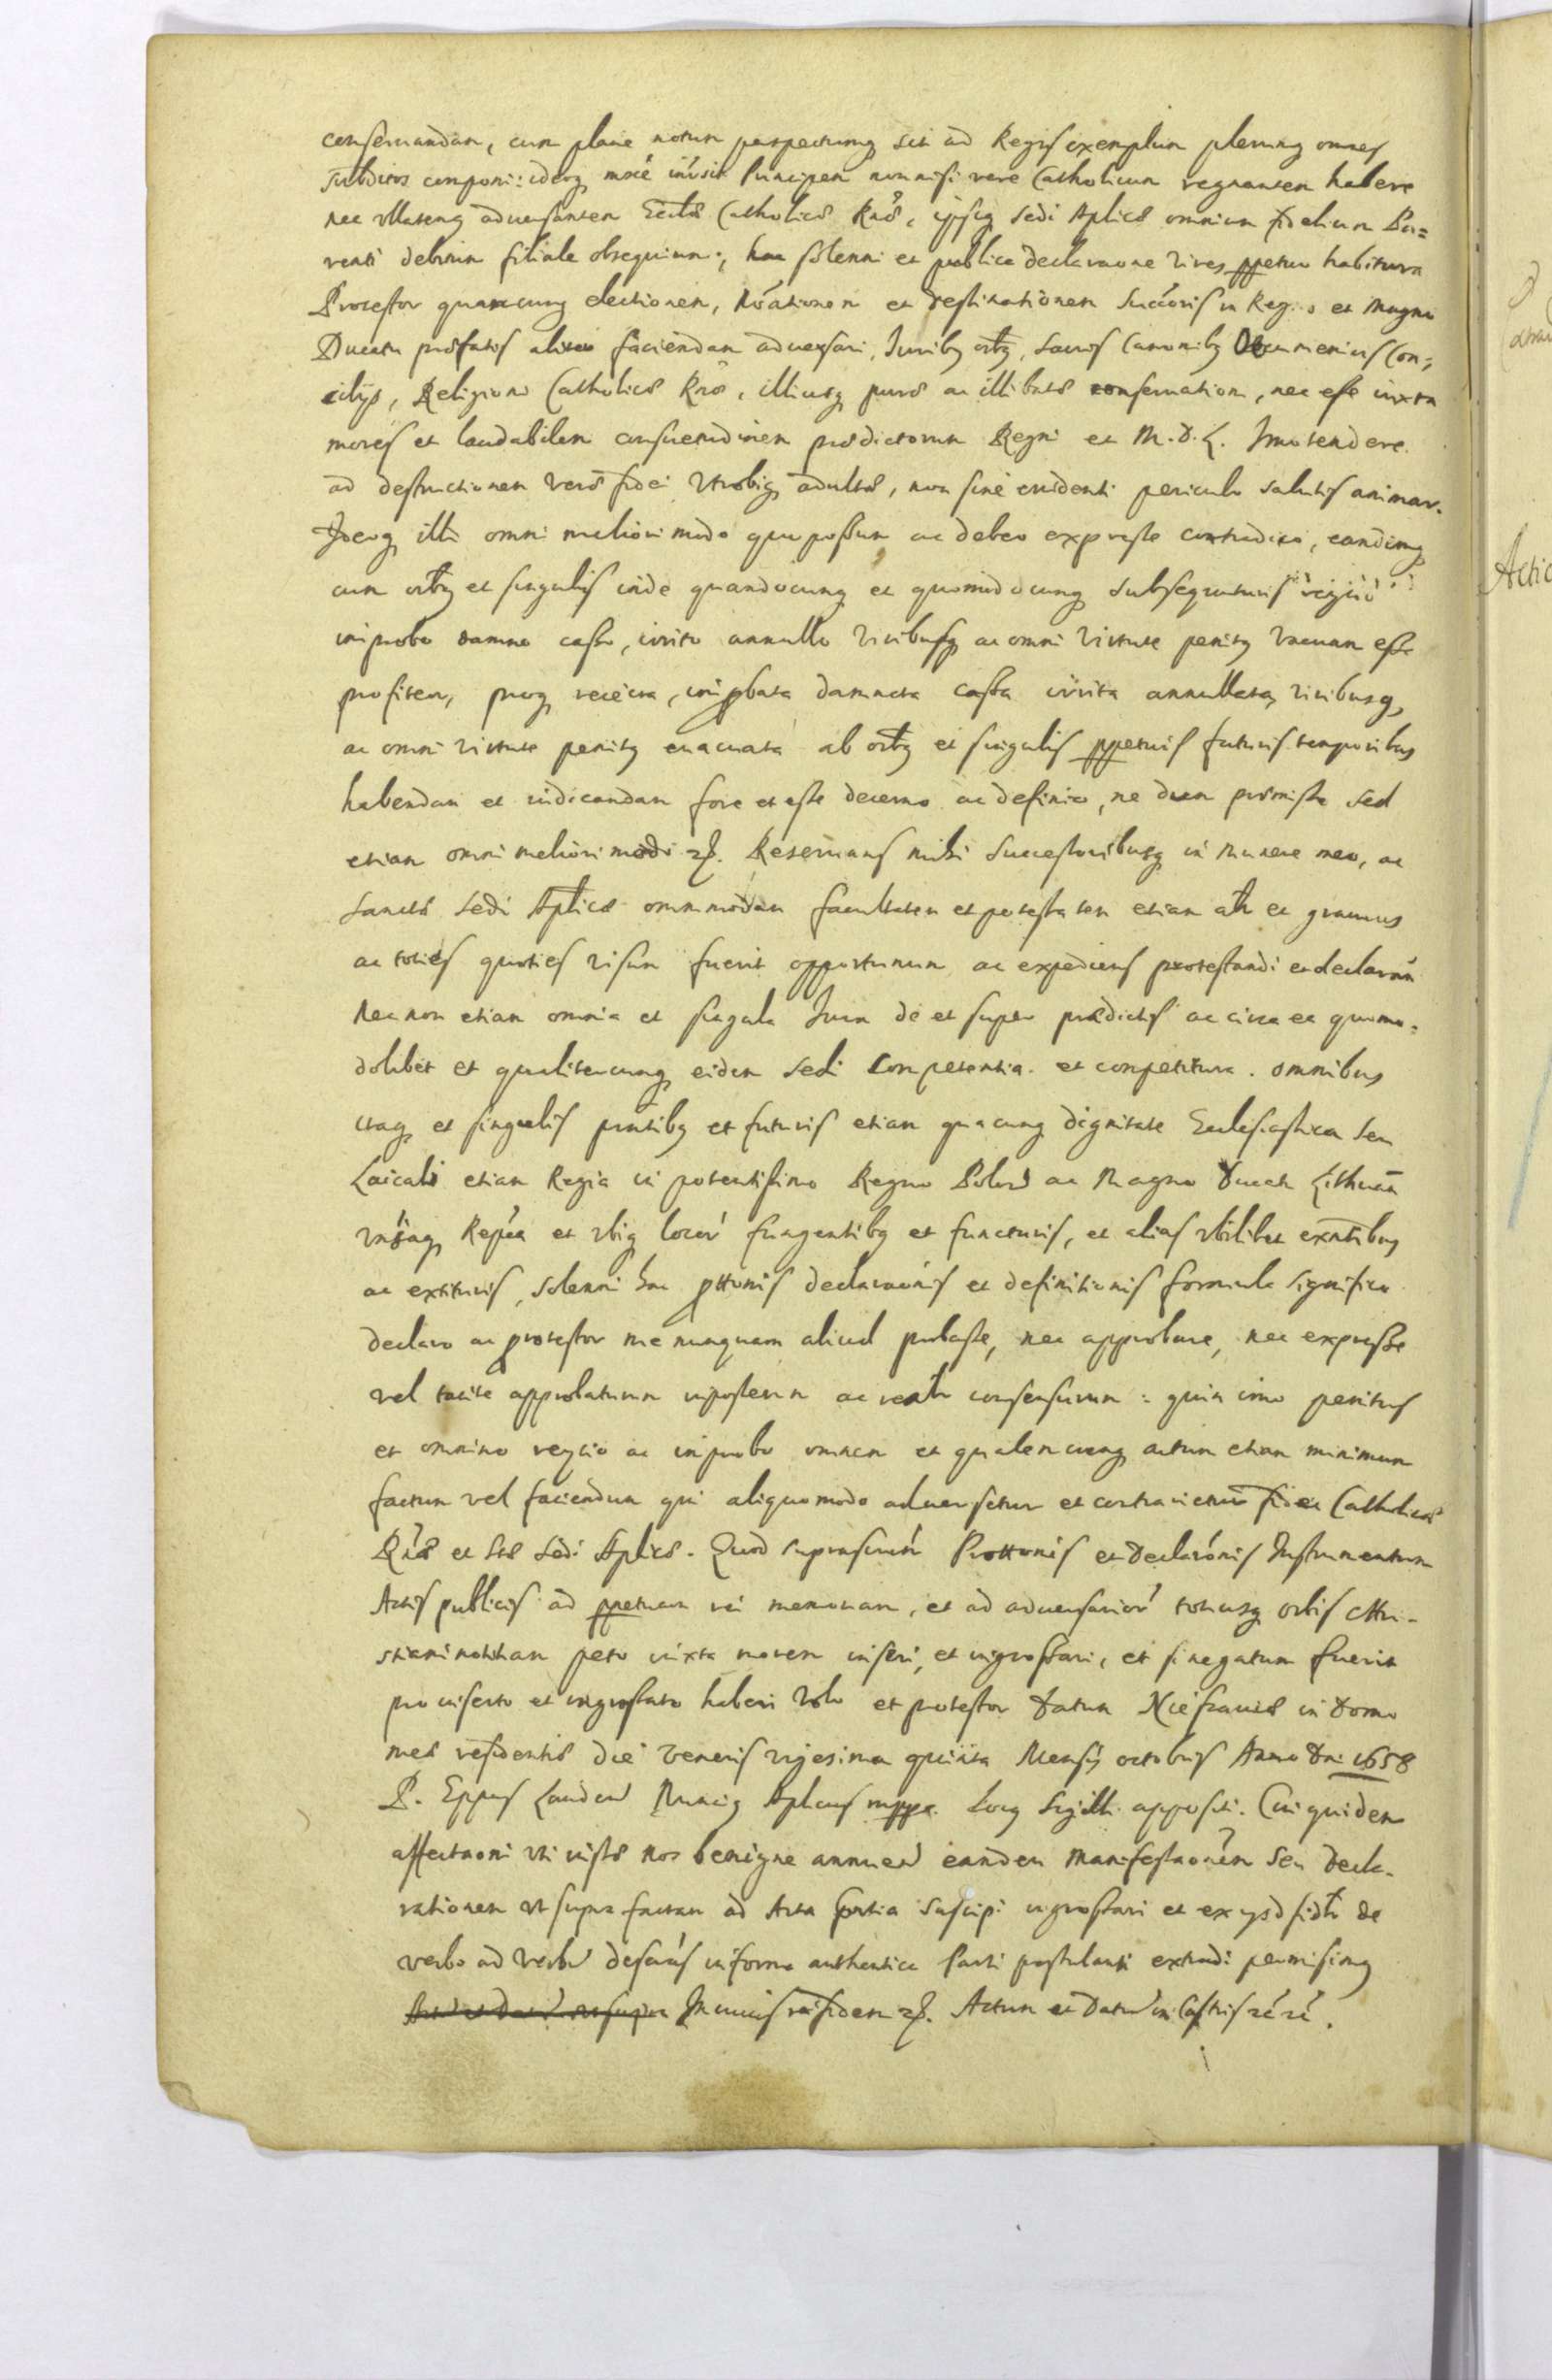 conseruandam, cum plane notum perspectumq sit ad Regis exemplum plerumq omnes
subditos componi: ideoq Principem non nisi vere Catholicum regnantem habere
nec vllatenq aduersantem Catholicæ Rnæ, ipsiq Sedi Aplicæ omnium fidelium Pa=
renti debitum filiale obsequium; hac solenni et publica declaraone vires ppetuo habitura
Protestor quamcunq electionem, et destinationem in Regno et Magno
Ducatu præfatis aliter faciendam aduersari, Iuribq oibq, Sacris Canonibq Oecumenicis Con=
cilijs, Religioni Catholicæ Rnæ, illiusq puræ ac illibatæ conseruationi, nec esse iuxta
mores et laudabilem consuetudinem prædictorum Regni et M. D. L. Imo tendere
ad destructionem veræ fidei vtrobiq adultæ, non sine euidenti periculo salutis animar.
Ideoq illi omni meliori modo quo possum ac debeo expresse contradico, eandemq
cum oibq et singulis inde quandocunq et quomodocunq subsequuturis reijcio
improbo damno casso, irrito annullo viribusq ac omni virtute penitq vacuam esse
profiteor, proq reiecta, improbata damnata cassa irrita annullata, viribusq,
ac omni virtute penitq euacuata ab oibq et singulis ppetuis futuris temporibus
habendam et iudicandam fore et esse decerno ac definio, ne dum præmisso sed
etiam omni meliori modo Reseruans mihi Successoribusq in munere meo, ac
Sanctæ Sedi Aplicæ omnimodam facultatem et potestatem etiam alr et grauius
ac toties quoties visum fuerit opportunum ac expediens protestandi et
nec non etiam omnia et singula Iura de et super prædictis ac circa ea quomo=
dolibet et qualitercunq eidem Sedi Competentia et competitura. omnibus
itaq et singulis pntibq et futuris etiam quacunq dignitate Ecclesiastica seu
Laicali etiam Regia in potentissimo Regno Polon ac Magno Ducatu Lithuan
et vbiq locor fungentibq et functuris, et alias vbilibet exntibus
ac extituris, solenni hac pttonis declaraonis et definitionis formula significo
declaro ac protestor me nunquam aliud probasse, nec approbare, nec expresse
vel tacite approbaturum inposterum ac consensurum: quin imo penitus
et omnino reijcio ac improbo omnem et qualemcunq actum etiam minimum
factum vel faciendum qui aliquomodo aduersetur et contrarietur fidei Catholicæ
Rnæ et Stæ Sedi Aplicæ. Quod suprascriptū Prottonis et declaraonis Instrumentum
Actis publicis ad ppetuam rei memoriam, et ad aduersarior totiusq orbis Chri-
stiani notitiam peto iuxta morem inseri, et ingrossari, et si negatum fuerit
pro inserto et ingrossato haberi volo et protestor Datum in domo
meæ residentiæ die Veneris vigesima quinta Mensis octobris Anno Dni 1658
P. Eppus Lauden Nunciq Aplicus mppa. Locq Sigilli appositi. Cui quidem
affectaoni vti iustæ nos benigne annuen eandem Manifestaonem Seu Decla-
rationem vt supra factam ad Acta pntia suscipi ingrossari et ex ijsd de
verbo ad verbū in forma authentica Parti postulanti extradi permisimq
In cuius rei fidem Actum et Datū in Castris